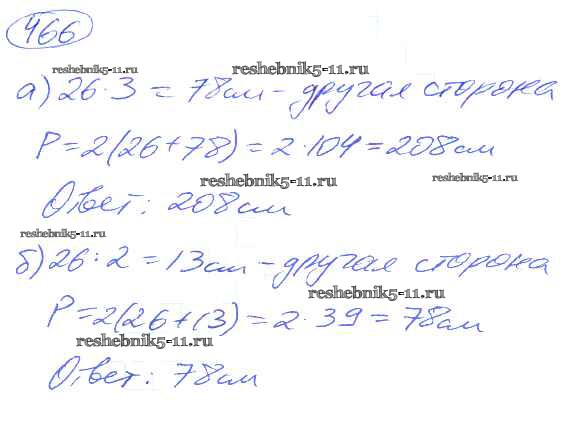 466
reshebnik5-11.ru reshebnik5-11.ru
а) 26·3 = 78см - другая сторона
P = 2(26+78) = 2·104 = 208см
reshebnik5-11.ru reshebnik5-11.ru
Ответ: 208см
reshebnik5-11.ru
б) 26:2 = 13см - другая сторона
reshebnik5-11.ru
P = 2(26+13) = 2·39 = 78см
reshebnik5-11.ru
Ответ: 78см